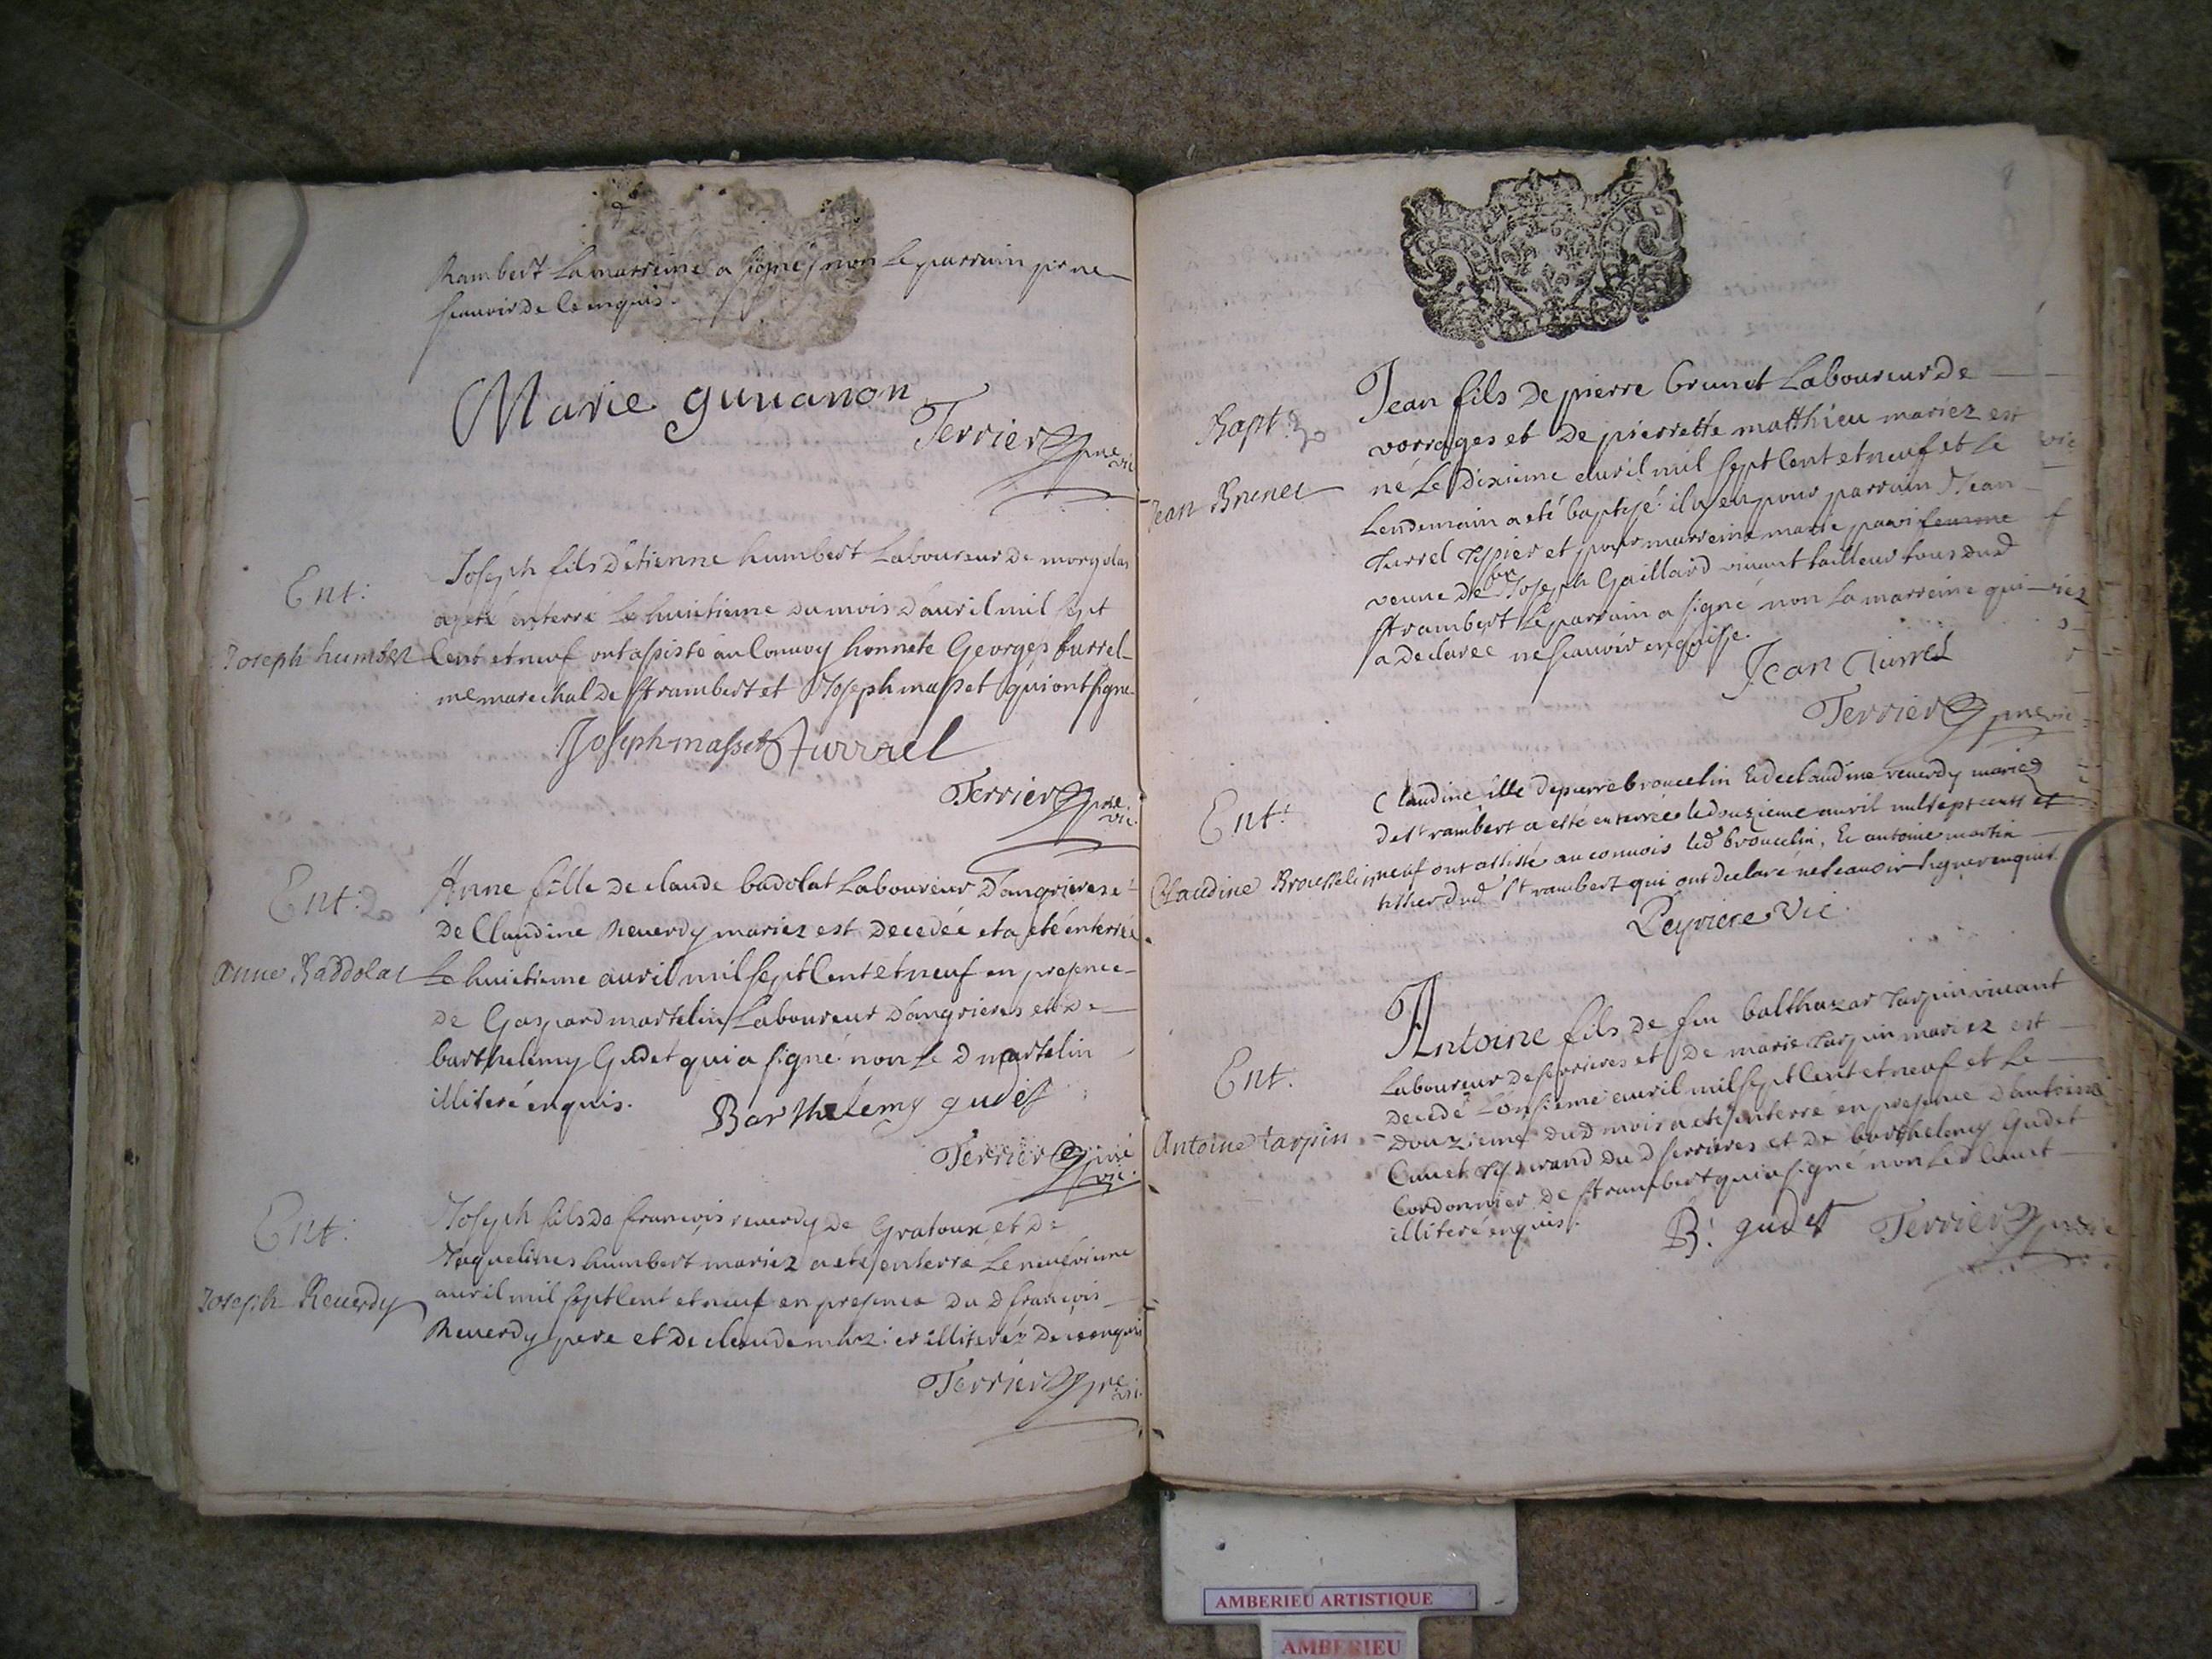 Rambert La marreine a signé non Le parrain pr ne
scauoir de ce enquis.
Marie guuanon
Terrier pre
vic
Ent:
Joseph humbert
Joseph fils d'étienne humbert Laboureur de morgelas
a eté enterré Le huictieme du mois d'auril mil sept
Cent et neuf ont assisté au Conuoy honnete Georges furrel
me marechal de st rambert et Joseph masset qui ont signé
Joseph masset Furrrel
Terrier pre
vic.
Ent:
anne Baddolat
Anne fille de claude badolat Laboureur d'angrieres et
de Claudine Reuerdy mariez est decedée et a eté enterrée
Le huictieme auril mil sept Cent et neuf en presence
de Gaspard martelin Laboureur d'angrieres et de
barthelemy Gudet qui a signé non Le d martelin
illiteré enquis.
Barthelemy gudet
Terrier pre
vic
Ent:
Joseph Reuerdy
Joseph fils de françois reuerdy de Gratoux et de
Jaquelines humbert mariez a eté enterré Le neufvieme
auril mil sept Cent et neuf en presence du d françois
Reuerdy pere et de claude illiterez de ce enquis
Terrier pre
vic.
Bapt:
Jean Brunet
Jean fils de pierre brunet Laboureur de
vorrages et de pierrette matthieu mariez est
né Le dixieme auril mil sept Cent et neuf et Le
Lendemain a eté baptisé il a eu pour parrain Jean
Turrel et pour marreine marie femme
veuue de fu Joseph Gaillard viuant tailleur tous dud
st rambert Le parrain a signé non La marreine qui
a declarée ne scauoir enquisse.
Jean Turrel
Terrier pre vic
Ent:
Claudine Brousselin
Claudine fille de pierre broucelin et de claudine reuerdy mariez
de st rambert a esté enterrée le douzieme auril mil sept cents et
neuf ont assisté au conuois led broucelin, et antoine martin
tissier dud st rambert qui ont declaré ne scauoir signer enquis.
Peyriere Vic.
Ent.
Antoine tarpin
Antoine fils de feu balthazar tarpin viuant
Laboureur de serrieres et de marie tarpin mariez est
decedé L'onsieme auril mil sept Cent et neuf et Le
douzieme dud mois a eté enterré en presence d'antoine
Cuuet du d serrieres et de barthelemy Gudet
Cordonnier de st rambert qui a signé non Led Cuuet
illiteré enquis.
B: gudet Terrier pre vic
AMBERIEU ARTISTIQUE
AMBERIEU